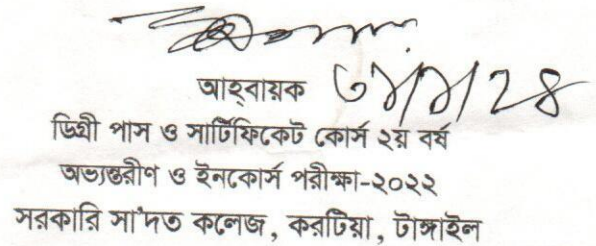 আহ্‌বায়ক
ডিগ্রী পাস ও সার্টিফিকেট কোর্স ২য় বর্ষ
অভ্যন্তরীণ ও ইনকোর্স পরীক্ষা-২০২২
সরকারি সা'দত কলেজ, করটিয়া, টাঙ্গাইল